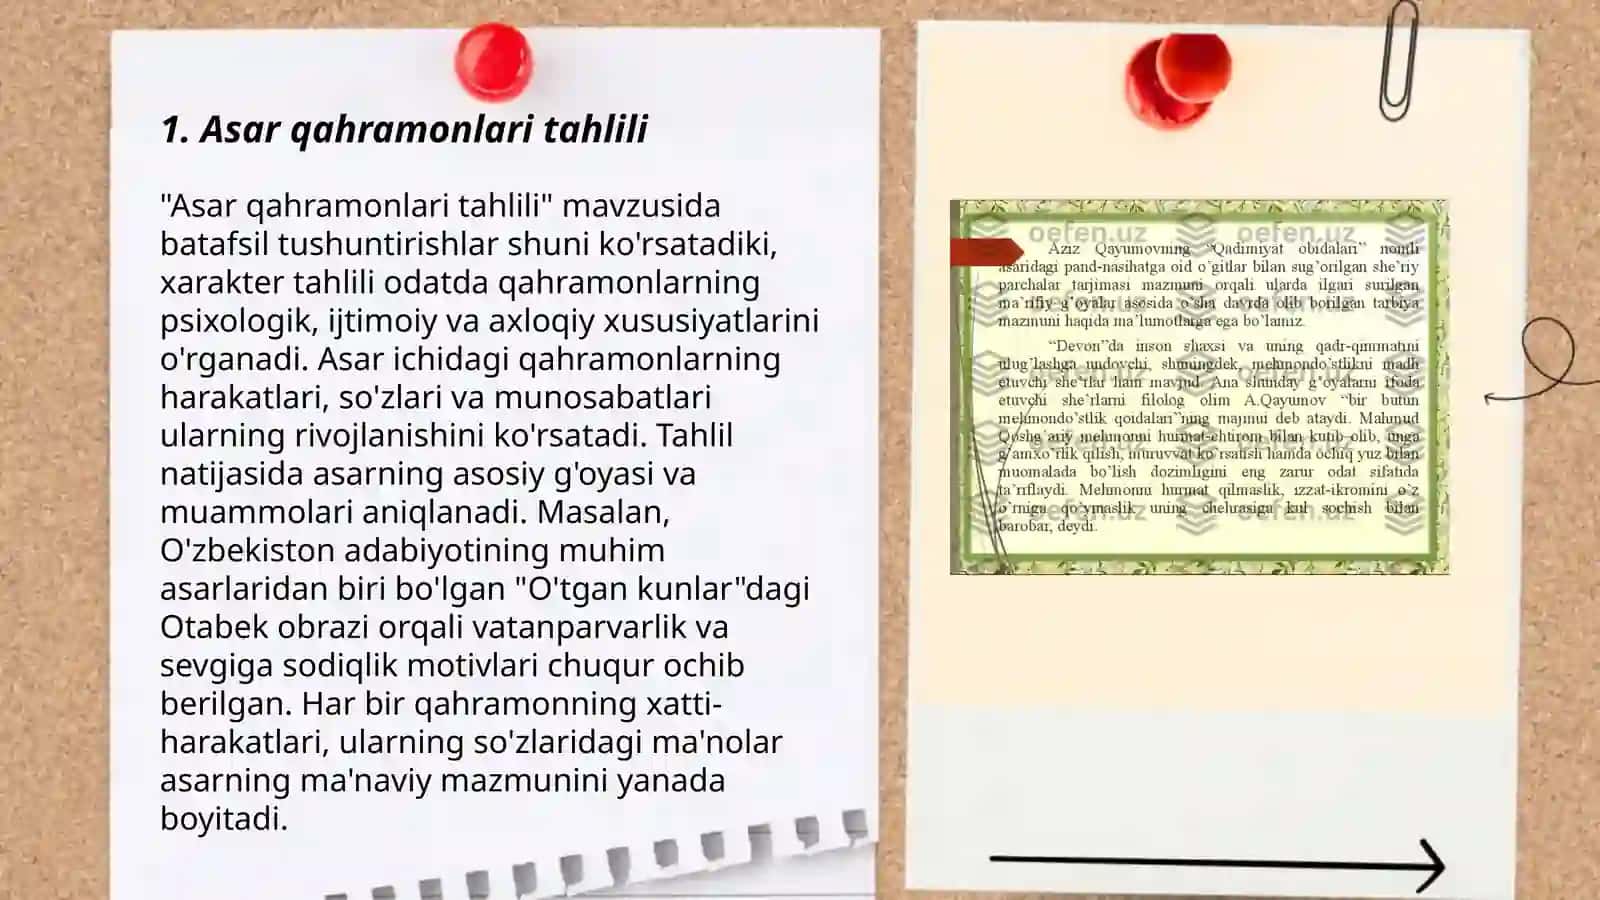 1. Asar qahramonlari tahlili
"Asar qahramonlari tahlili" mavzusida
batafsil tushuntirishlar shuni ko'rsatadiki,
xarakter tahlili odatda qahramonlarning
psixologik, ijtimoiy va axloqiy xususiyatlarini
o'rganadi. Asar ichidagi qahramonlarning
harakatlari, so'zlari va munosabatlari
ularning rivojlanishini ko'rsatadi. Tahlil
natijasida asarning asosiy g'oyasi va
muammolari aniqlanadi. Masalan,
O'zbekiston adabiyotining muhim
asarlaridan biri bo'lgan "O'tgan kunlar"dagi
Otabek obrazi orqali vatanparvarlik va
sevgiga sodiqlik motivlari chuqur ochib
berilgan. Har bir qahramonning xatti-
harakatlari, ularning so'zlaridagi ma'nolar
asarning ma'naviy mazmunini yanada
boyitadi.
Aziz Qayumovning “Qadimiyat obidalari” nomli
asaridagi pand-nasihatga oid o’gitlar bilan sug’orilgan she’riy
parchalar tarjimasi mazmuni orqali ularda ilgari surilgan
ma’rifiy g’oyalar asosida o’sha davrda olib borilgan tarbiya
mazmuni haqida ma’lumotlarga ega bo’lamiz.
“Devon”da inson shaxsi va uning qadr-qimmatini
ulug’lashga undovchi, shuningdek, mehmondo’stlikni madh
etuvchi she’rlar ham mavjud. Ana shunday g’oyalarni ifoda
etuvchi she’rlarni filolog olim A.Qayumov “bir butun
mehmondo’stlik qoidalari”ning majmui deb ataydi. Mahmud
Qoshg’ariy mehmonni hurmat-ehtirom bilan kutib olib, unga
g’amxo’rlik qilish, muruvvat ko’rsatish hamda ochiq yuz bilan
muomalada bo’lish dozimligini eng zarur odat sifatida
ta’riflaydi. Mehmonni hurmat qilmaslik, izzat-ikromini o’z
o’rniga qo’ymaslik uning chehrasiga kul sochish bilan
barobar, deydi.
oefen.uz oefen.uz
oefen.uz oefen.uz
oefen.uz oefen.uz
oefen.uz oefen.uz
oefen.uz oefen.uz